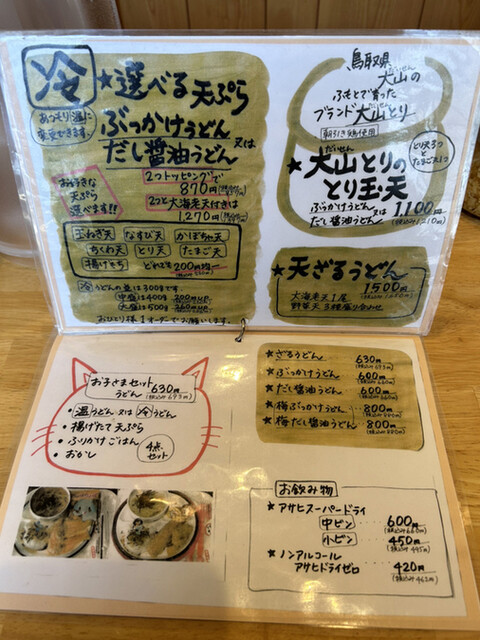 冷
★選べる天ぷら
あつもり(温)に
変更できます。
ぶっかけうどん 又は
だし醤油うどん
お好きな
天ぷら
選べます!!
2つトッピングで
870円
2つと大海老天付きは
1,270円
玉ねぎ天 なすび天 かぼちゃ天
ちくわ天 とり天 たまご天
揚げもち どれでも200円均一
冷うどんの量は300gです
中盛は400g 200円UP
大盛は500g 260円UP
おひとり様1オーダーでお願いします。
鳥取県
だいせん
大山の
ふもとで育った
ブランド大山とり
朝引き鶏使用
とり天3つ
と
たまご天1つ
だいせん
★大山とりの
とり玉天
ぶっかけうどん 又は
だし醤油うどん
1,100円
(税込み1210円)
★天ざるうどん
1500円
(税込み1650円)
大海老天1尾
野菜天3種盛り合わせ
お子さまセット
うどん 630円
(税込み693円)
・温うどん 又は 冷うどん
・揚げたて天ぷら
・ふりかけごはん
・おかし
4点
セット
★ざるうどん 630円
(税込み693円)
★ぶっかけうどん 600円
(税込み660円)
★だし醤油うどん 600円
(税込み660円)
★梅ぶっかけうどん 800円
(税込み880円)
★梅だし醤油うどん 800円
(税込み880円)
お飲み物
★アサヒスーパードライ
中ビン 600円
(税込み660円)
小ビン 450円
(税込み495円)
★ノンアルコール
アサヒドライゼロ 420円
(税込み462円)